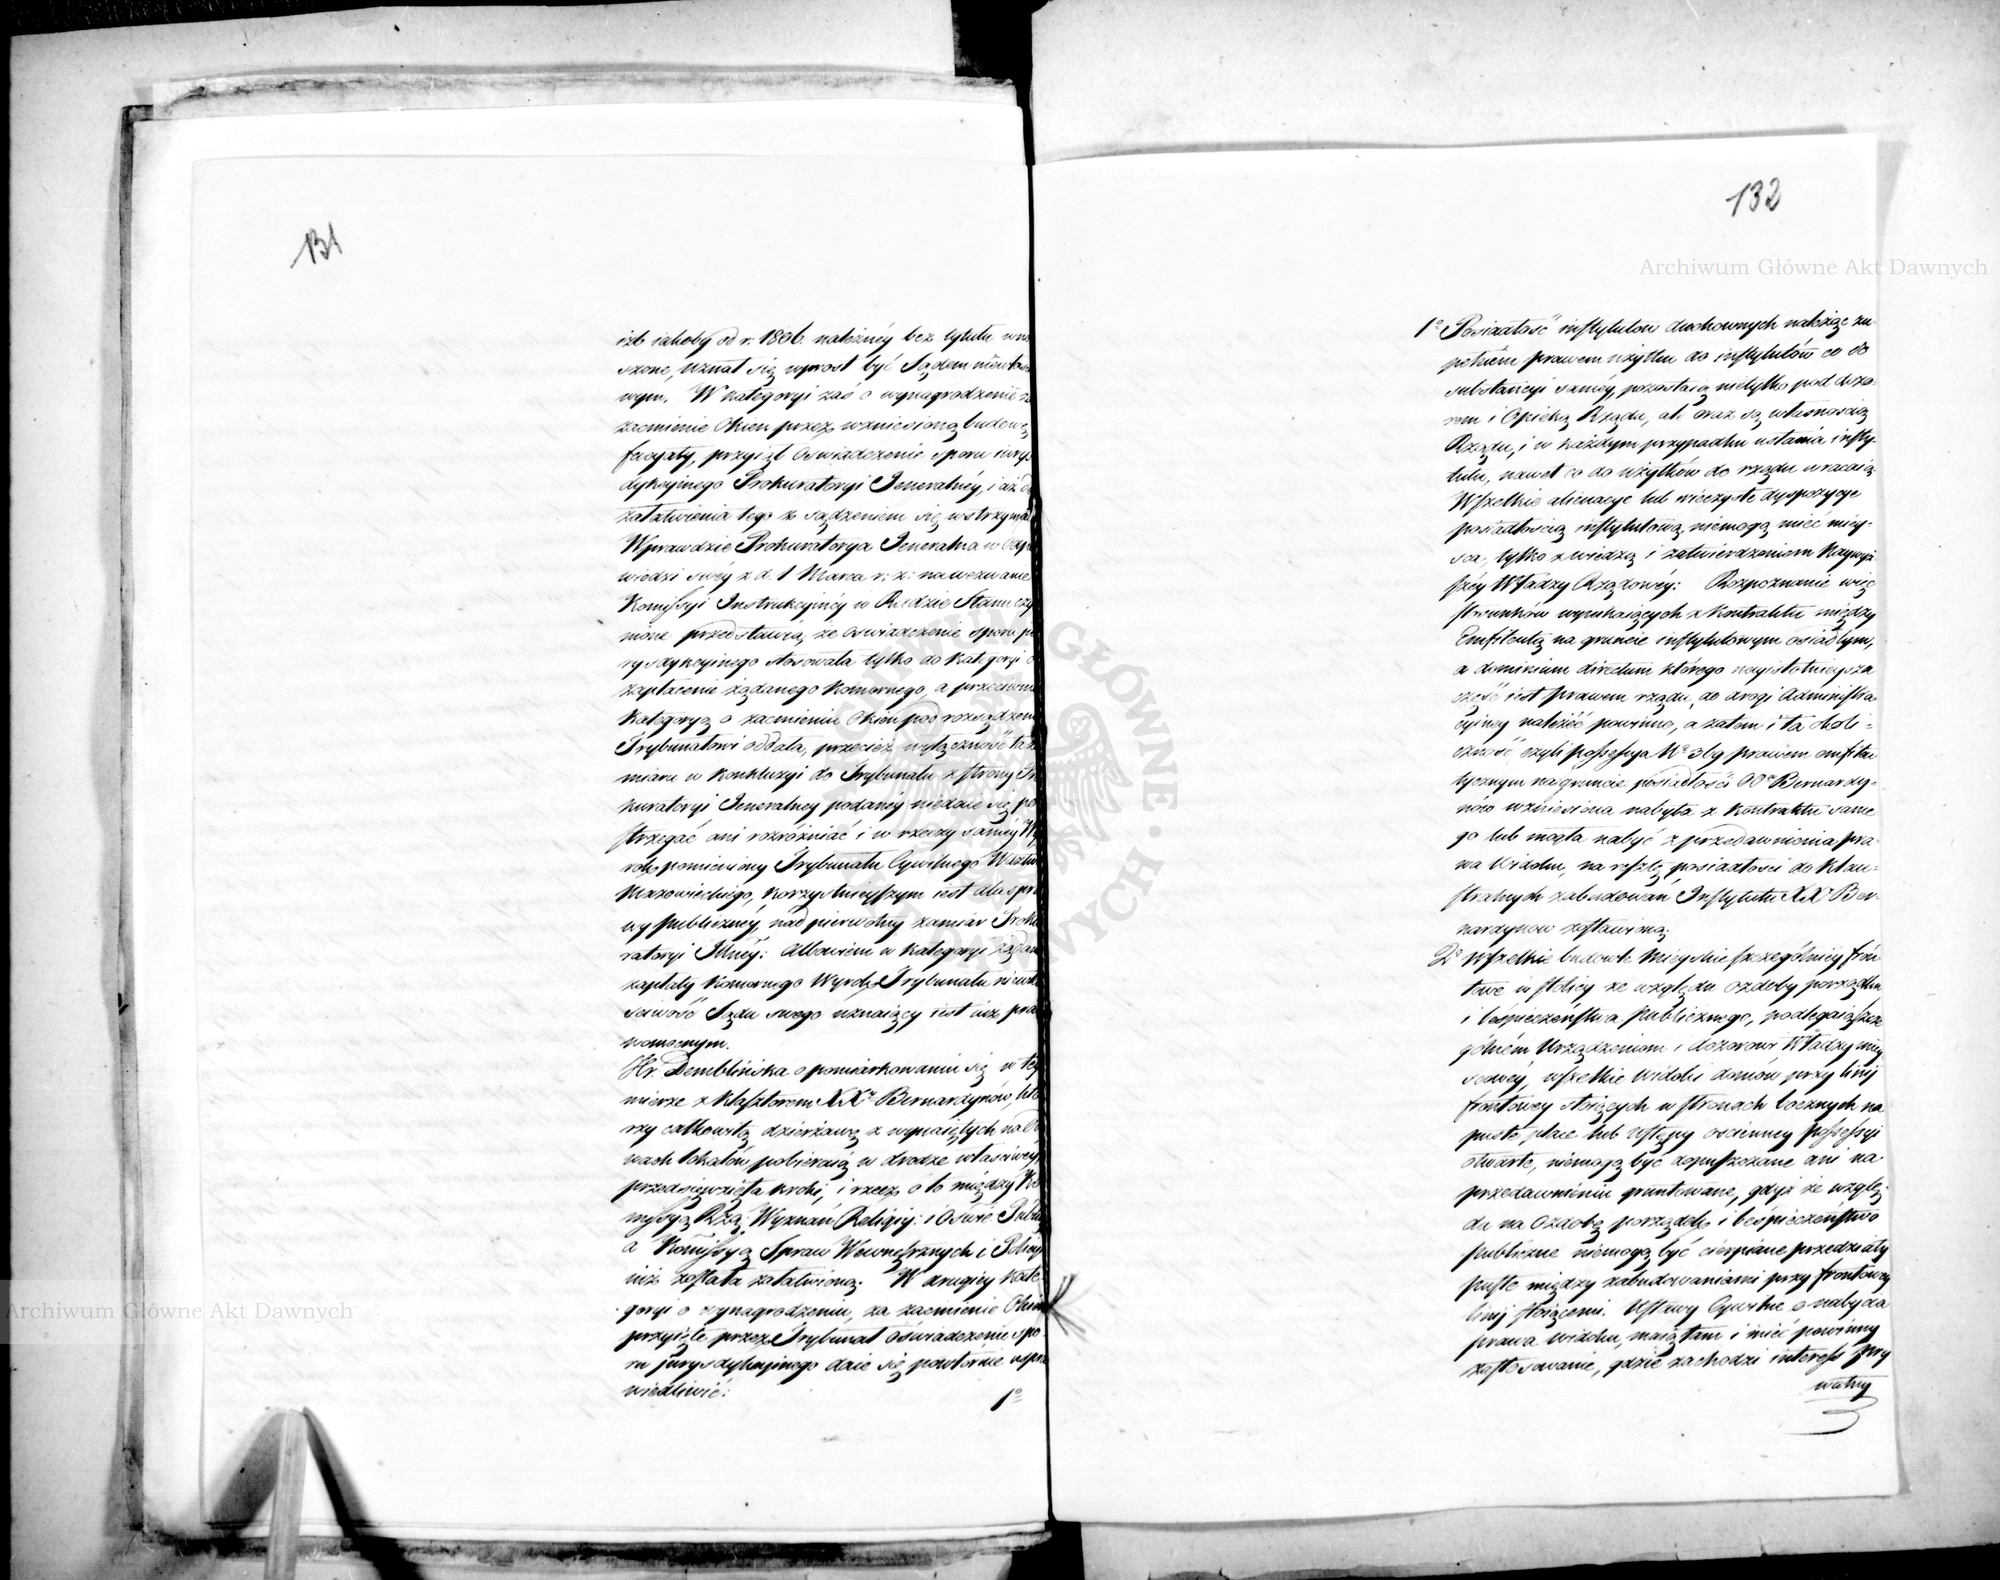 131
izb jakoby od r. 1806. należnéy bez tytułu wnie
szone, uznał się wprost być Sądem niewłaści
wym. W kategoryi zaś o wynagrodzenie za
zacmienie Okien przez wzniesioną budowę
facyaty, przyiął Oswiadczenie sporu iurys
dykcyinego Prokuratoryi Jeneralnéy, i aż do
załatwienia tego ze sądzeniem się wstrzymał
Wprawdzie Prokuratorya Jeneralna w odpo
wiedzi swéy z d. 1 Marca r: z: na wezwanie
Kommissyi Instrukcyinéy w Radzie Stanu czy
nione przedstawia, że Oswiadczenie sporu ju
rysdykcyinego stosowała tylko do Kategoryi o
zapłacenie żądanego Komornego, a przeciwnie
Kategoryą o zacmieniu Okien pod rozsądzenie
Trybunałowi oddała, przecież wyłączność ta za
miaru w Konkluzyi do Trybunału z strony Pro
kuratoryi Jeneralney podanéy niedaie się po
strzegać ani rozróżniać i w rzeczy saméy Wy
rok pomieniony Trybunału Cywilnego Wdztwa
Mazowieckiego, korzystnieyszym iest dla spra
wy publicznéy, nad pierwotny zamiar Proku
ratoryi Jlnéy: Albowiem w Kategoryi żądanéy
zapłaty Komornego Wyrok Trybunału niewła
sciwość Sądu swego uznaiący iest iuż pra
womocnym.
Hr. Demblińska o pomiarkowanie się w tey
mierze z Klasztorem XX. Bernardynów, któ
rzy całkowitą dzierżawę z wynaiętych
lokalów pobieraią w drodze właściwey,
przedsięwzięła kroki, i rzecz o to między Ko
missyą Rzą: Wyznań Religiy: i Oświe: Publi
a Kommissyą Spraw Wewnętrznych i Policyi
iuż została załatwioną. W drugiéy Kate
goryi o wynagrodzenie, za zacmienie Okien
przyięte przez Trybunał oświadczenie spo
ru jurysdykcyinego daie się powtórnie uspra
wiedliwić:
1º
132
1º Posiadłość instytutów duchownych należąc zu
pełném prawem użytku do instytutów co do
substancyi saméy, pozostaią nietylko pod dozo
rem i Opieką Rządu, ale oraz są własnością
Rządu, i w każdym przypadku ustania insty
tutu, nawet co do użytków do rządu wracaią
Wszelkie alienacye lub wieczyste dyspozycye
posiadłością instytutową, niemogą mieć miey-
sca, tylko z wiedzą i zatwierdzeniem Naywyż
széy Władzy Rządowéy: Rozpoznanie więc
stosunków wynikaiących z Kontraktu między
Emfiteutą na gruncie instytutowym osiadłym,
a dominium directum którego nayistotnieysza
część iest prawem rządu, do drogi Administra
cyiney należéć powinno, a zatem i ta okoli-
czność czyli possessya Nº 369 prawem emfiteu
tycznym na gruncie posiadłości OO. Bernardy-
nów wzniesiona nabyła z Kontraktu same
go lub mogła nabyć z przedawnienia pra-
wa widoku, na resztę posiadłości do Klau-
stralnych zabudowań Instytutu XX. Ber-
nardynów zostawioną.
2º Wszelkie budowle Mieyskie szczególniéy fron
towe w stolicy ze względu ozdoby porządku
i bespieczeństwa publicznego, podlegaią szcze
gólném Urządzeniom i dozorowi Władzy miey
scowéy, wszelkie widoki domów przy linij
frontowey stoiących w stronach bocznych na
puste place lub ustępy ościenney possessyi
otwarte, niemogą być dopuszczane ani na
przedawnieniu gruntowane, gdyż ze wzglę-
du na Ozdobę porządek i bespieczeństwo
publiczne niemogą być cierpiane przedziały
puste między zabudowaniami przy frontowey
linij stoiącemi. Ustawy Cywilne o nabycia
prawa widoku, maią tam i mieć powinny
zastosowanie, gdzie zachodzi interess pry
watny
Archiwum Główne Akt Dawnych
Archiwum Główne Akt Dawnych